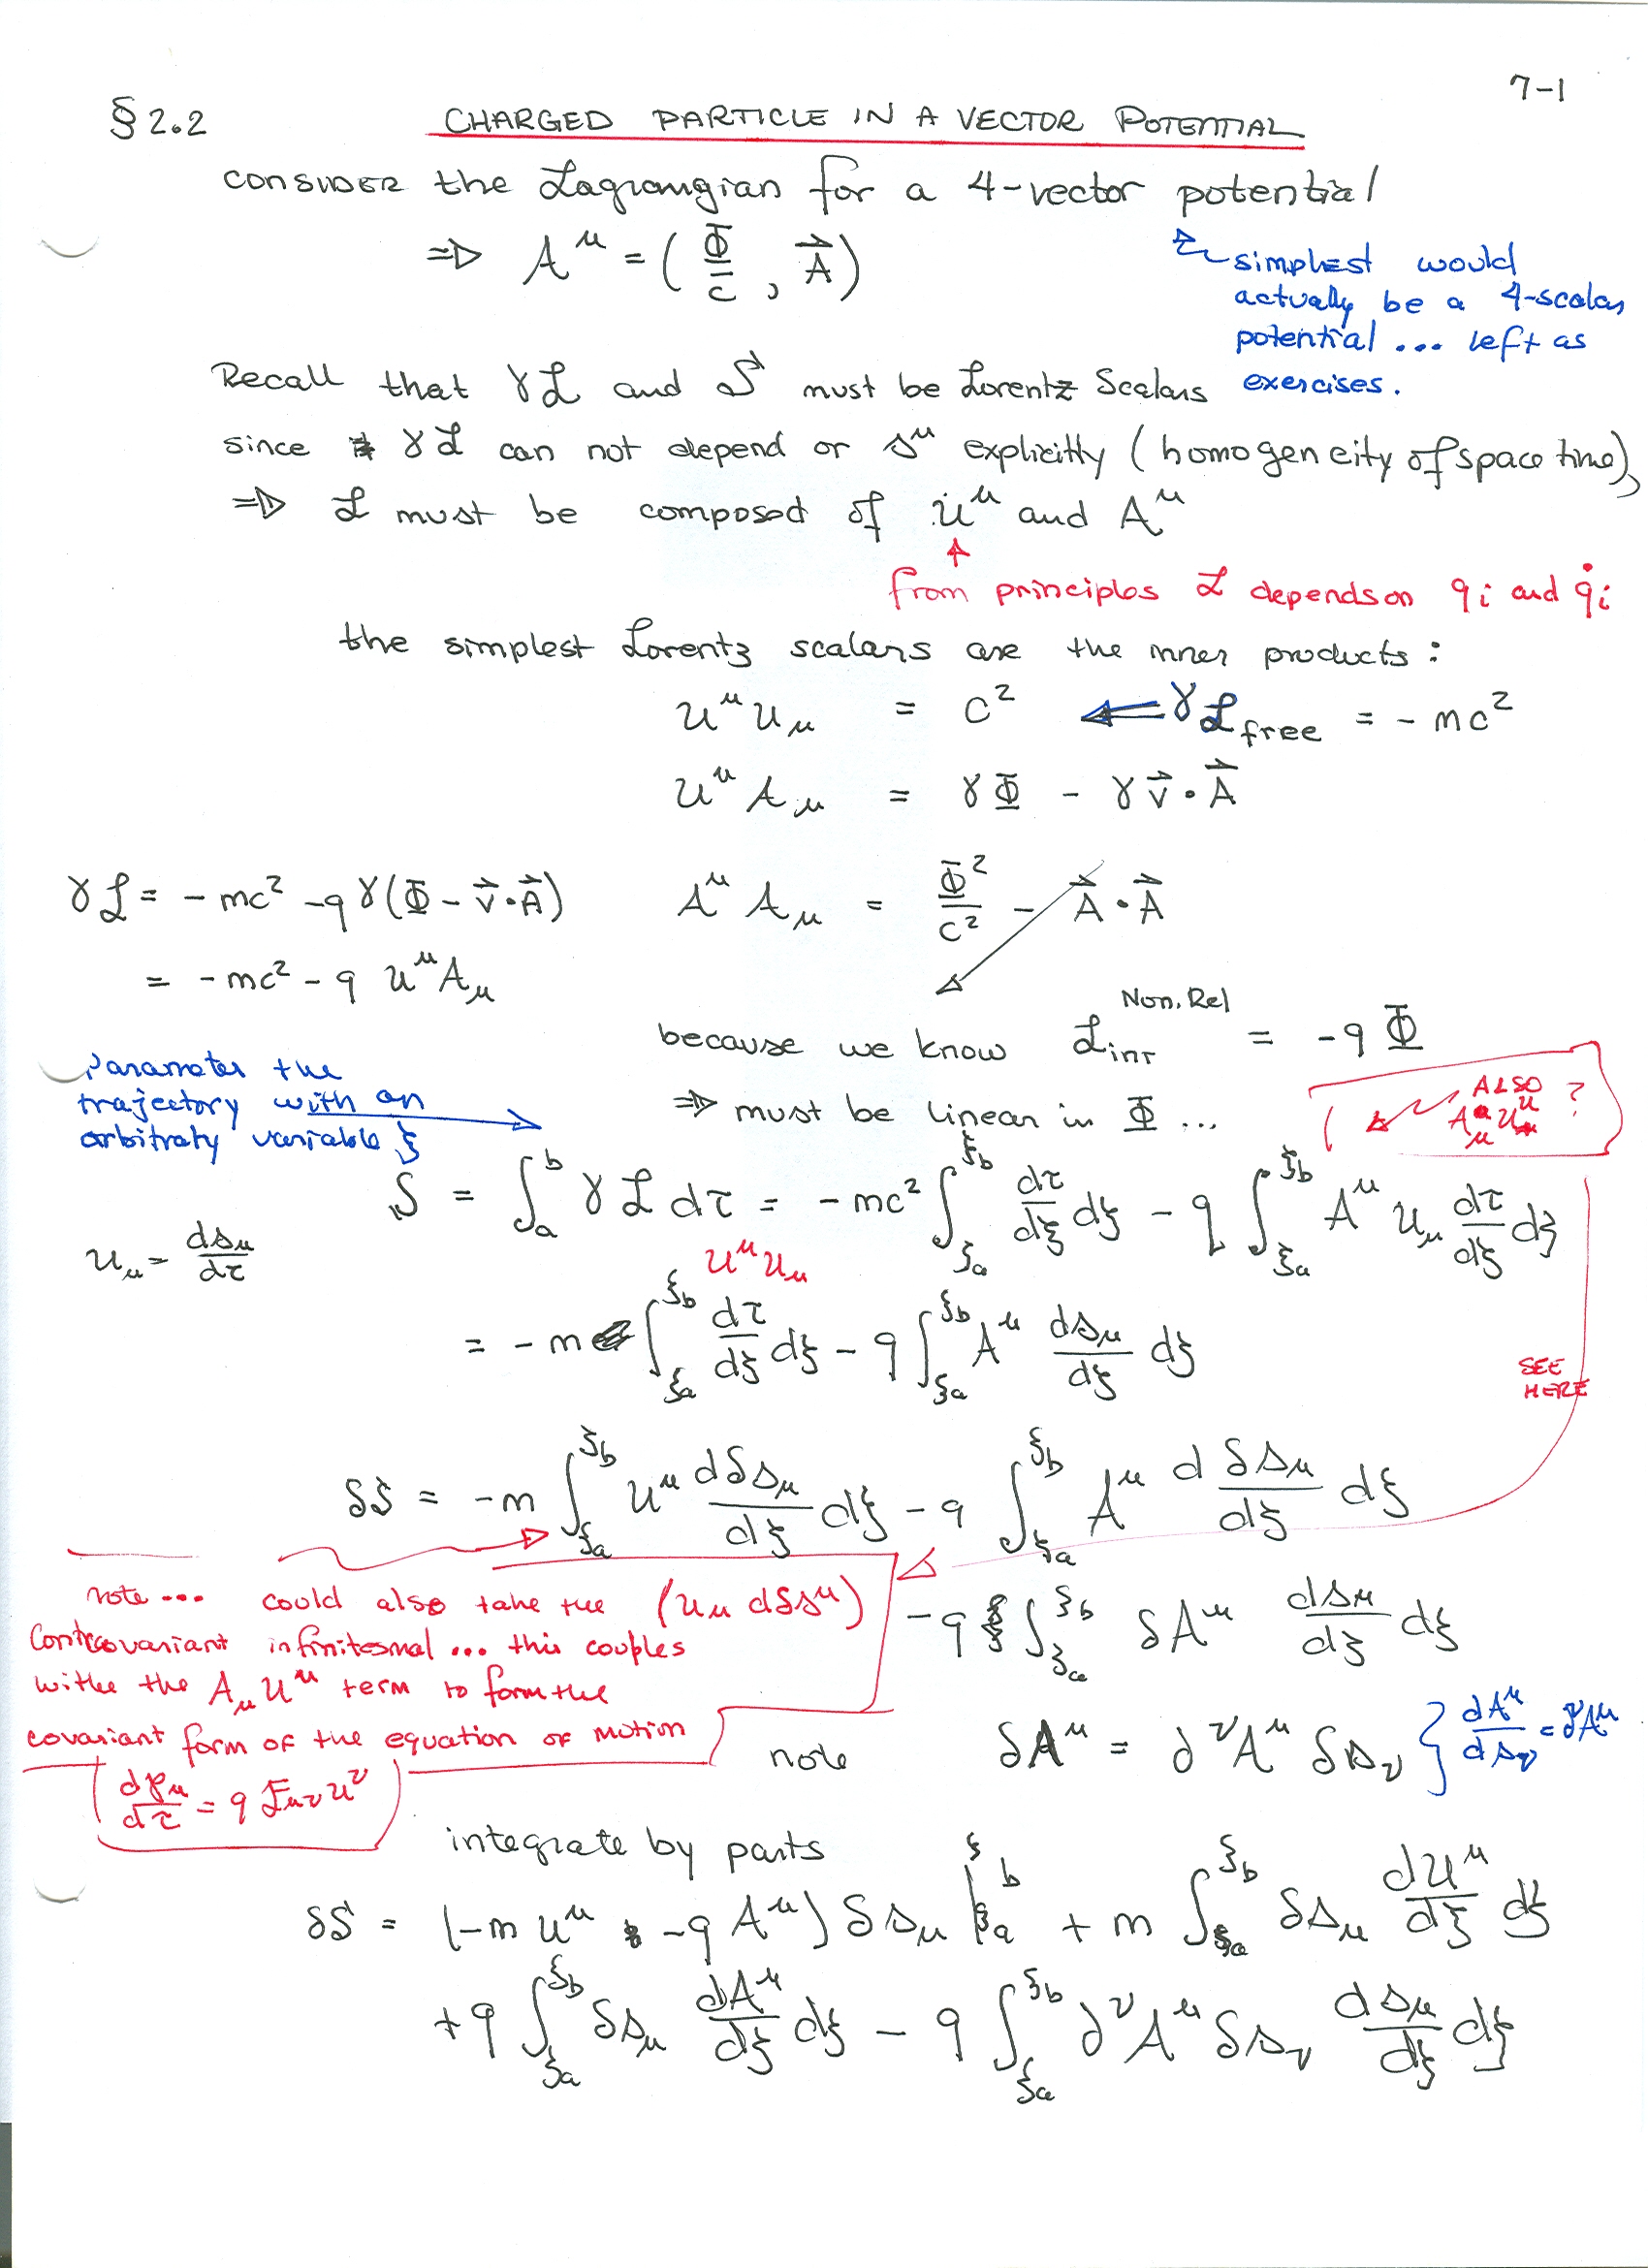 7-1
§ 2.2 CHARGED PARTICLE IN A VECTOR POTENTIAL
CONSIDER the Lagrangian for a 4-vector potential
⇒ A^μ = (Φ/c , A⃗)
simplest would
actually be a 4-scalar
potential ... left as
exercises.
Recall that γℒ and S must be Lorentz Scalars
since γℒ can not depend or s^μ explicitly (homogeneity of space time),
⇒ ℒ must be composed of u^μ and A^μ
from principles ℒ depends on q_i and q̇_i
the simplest Lorentz scalars are the inner products:
u^μ u_μ = c² ⇐ γℒ_free = - mc²
u^μ A_μ = γΦ - γ v⃗ • A⃗
γℒ = - mc² - qγ(Φ - v⃗•A⃗)
A^μ A_μ = Φ²/c² - A⃗ • A⃗
= - mc² - q u^μ A_μ
because we know ℒ_int^Non.Rel = - q Φ
⇒ must be linear in Φ ...
ALSO
A_μ u^μ ?
Parameter the
trajectory with an
arbitraty variable ξ
S = ∫_a^b γℒ dτ = - mc² ∫_ξa^ξb dτ/dξ dξ - q ∫_ξa^ξb A^μ u_μ dτ/dξ dξ
u_μ = ds_μ/dτ
u^μ u_μ
= - m ∫_ξa^ξb dτ/dξ dξ - q ∫_ξa^ξb A^μ ds_μ/dξ dξ
SEE
HERE
δS = - m ∫_ξa^ξb u^μ dδs_μ/dξ dξ - q ∫_ξa^ξb A^μ dδs_μ/dξ dξ
- q ∫_ξa^ξb δA^μ ds_μ/dξ dξ
note ... could also take the (u_μ dδs^μ)
Contravariant infinitesmal ... this couples
withe the A_μ u^μ term to form the
covariant form of the equation of motion
dp_μ/dτ = q F_μν u^ν
note δA^μ = ∂^ν A^μ δs_ν } dA^μ/ds_ν = ∂^ν A^μ
integrate by parts
δS = (-m u^μ - q A^μ) δs_μ |_ξa^ξb + m ∫_ξa^ξb δs_μ du^μ/dξ dξ
+ q ∫_ξa^ξb δs_μ dA^μ/dξ dξ - q ∫_ξa^ξb ∂^ν A^μ δs_ν ds_μ/dξ dξ